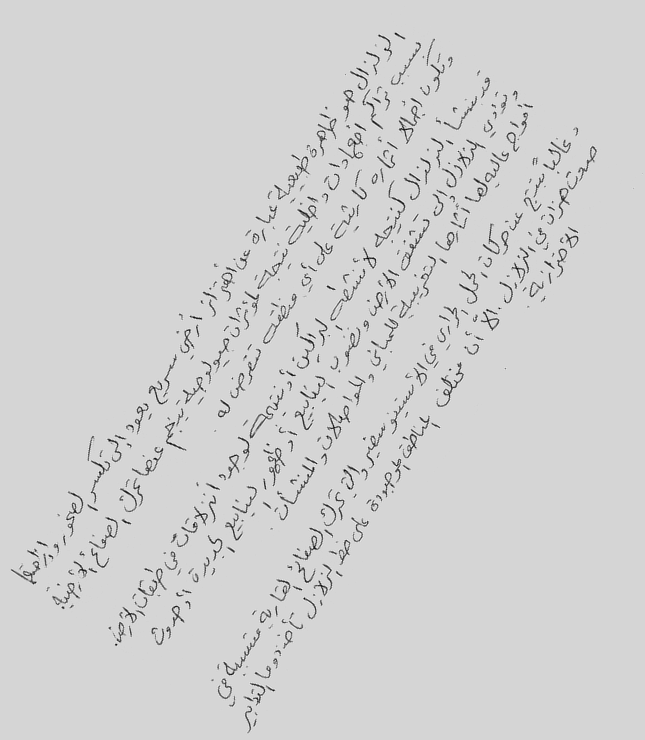 الزلزال هو ظاهرة طبيعية عبارة عن اهتزاز أرضي سريع يعود إلى تكسر الصخور وإزاحتها
بسبب تراكم اجهادات داخلية نتيجة لمؤثرات جيولوجية ينجم عنها تحرك الصفائح الأرضية.
وتكون أثاره كارثية على أي منطقة تتعرض له.
قد ينشأ الزلزال كنتيجة لأنشطة البراكين أو نتيجة لوجود انزلاقات في طبقات الأرض.
وتؤدي الزلازل إلى تشقق الأرض ونضوب الينابيع أو ظهور الينابيع الجديدة أو حدوث
أمواج عالية لها أثارها التخريبية للمباني والمواصلات والمنشآت.
وغالبا ينتج عن حركات الحمل الحراري في الأسينوسفير والتي تحرك الصفائح القارية متسببة في
حدوث هزات هي الزلازل. إلا أن مختلف المناطق الموجودة على خط الزلازل تأخذ دوما التدابير
الاحترازية.